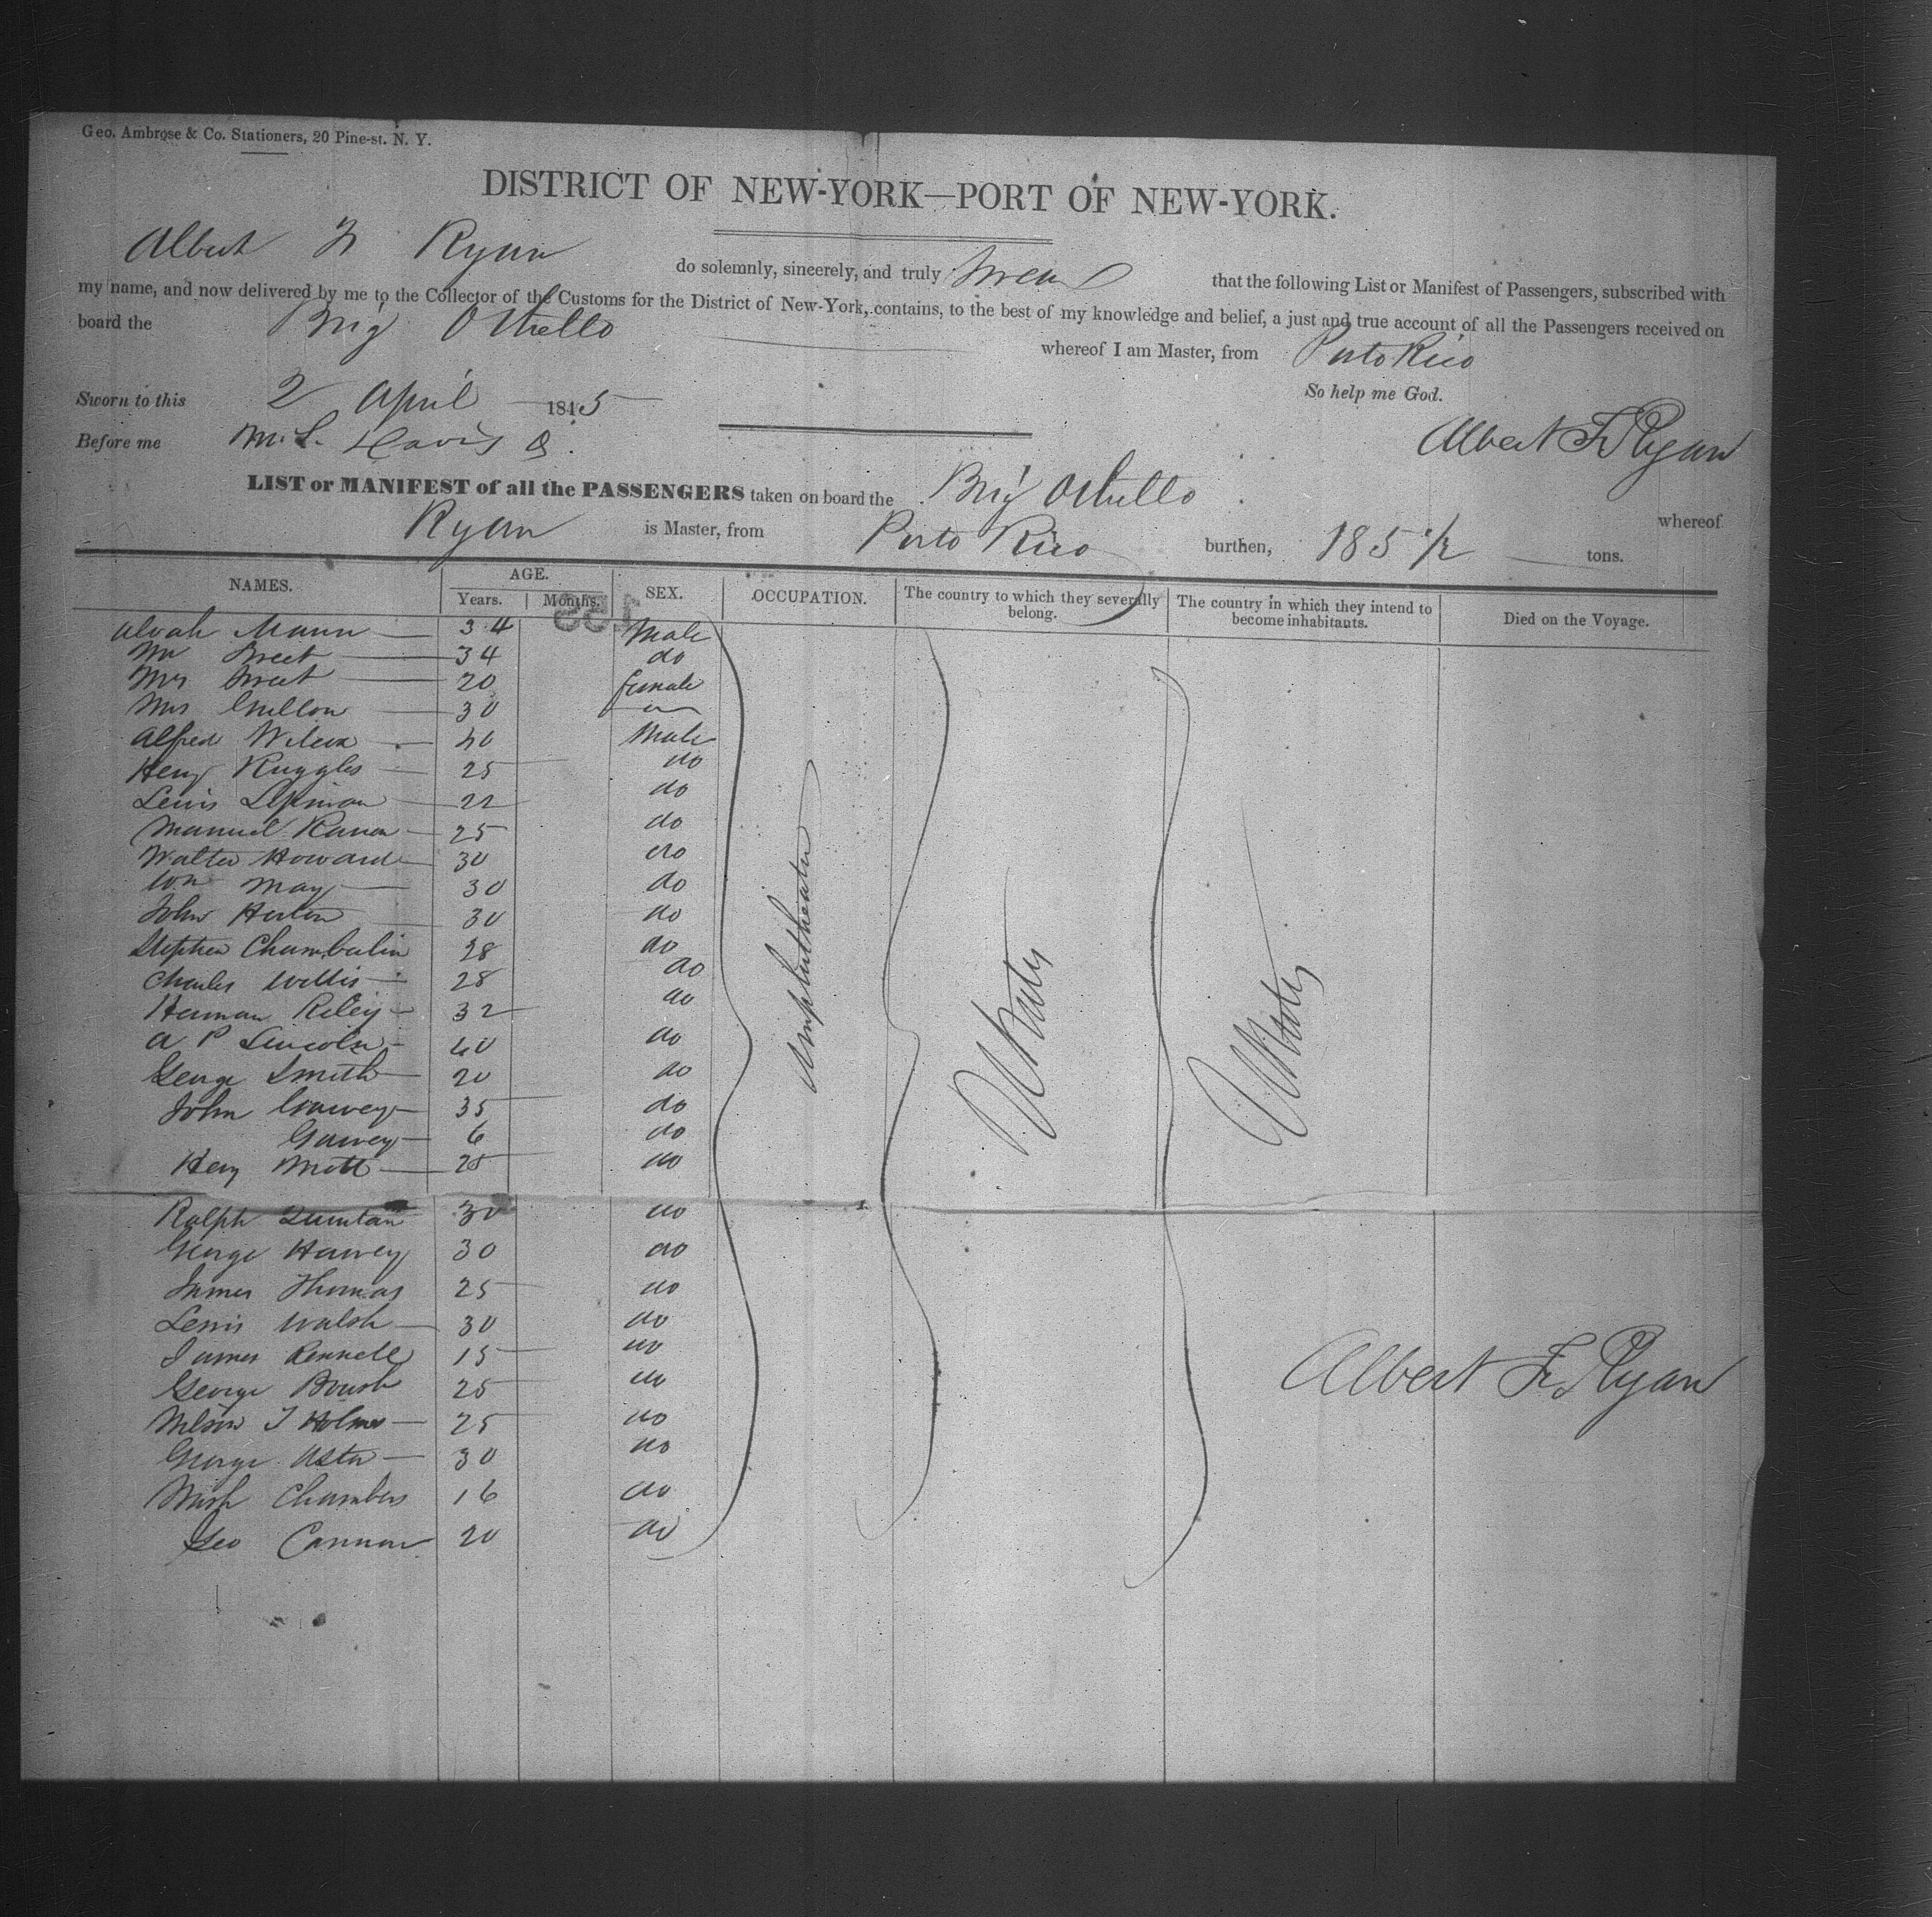 Geo. Ambrose & Co. Stationers, 20 Pine-st. N. Y.
DISTRICT OF NEW-YORK—PORT OF NEW-YORK.
Albert F Ryan do solemnly, sincerely, and truly Swear that the following List or Manifest of Passengers, subscribed with
my name, and now delivered by me to the Collector of the Customs for the District of New-York, contains, to the best of my knowledge and belief, a just and true account of all the Passengers received on
board the Brig Othello whereof I am Master, from Porto Rico
So help me God.
Sworn to this 2 April 1845
Before me M. L. Davis
Albert F Ryan
LIST or MANIFEST of all the PASSENGERS taken on board the Brig Othello whereof
Ryan is Master, from Porto Rico burthen, 185 1/2 tons.
NAMES. AGE. Years. Months. SEX. OCCUPATION. The country to which they severally belong. The country in which they intend to become inhabitants. Died on the Voyage.
Alvah Mann 34 Male
Mr Sweet 34 do
Mrs Sweet 20 female
Mrs 30
Alfred Wilcox 40 Male
Heny Ruggles 25 do
Lewis Lipman 22 do
Manuel 25 do
Walter Howard 30 do
Wm May 30 do
John Horton 30 do
Stephen Chamberlin 28 do
Charles Willis 28 do
Herman Riley 32 do
A P Lincoln 40 do
George Smith 20 do
John 35 do
6 do
Heny Mott 25 do
Ralph Quintan 30 do
George Harvey 30 do
James Thomas 25 do
Lewis Walsh 30 do
James 15 do
George 25 do
Nelson J Holmes 25 do
George Aster 30 do
Chambers 16 do
Geo Cannon 20 do
Amphitheatre
U States
U States
Albert F Ryan